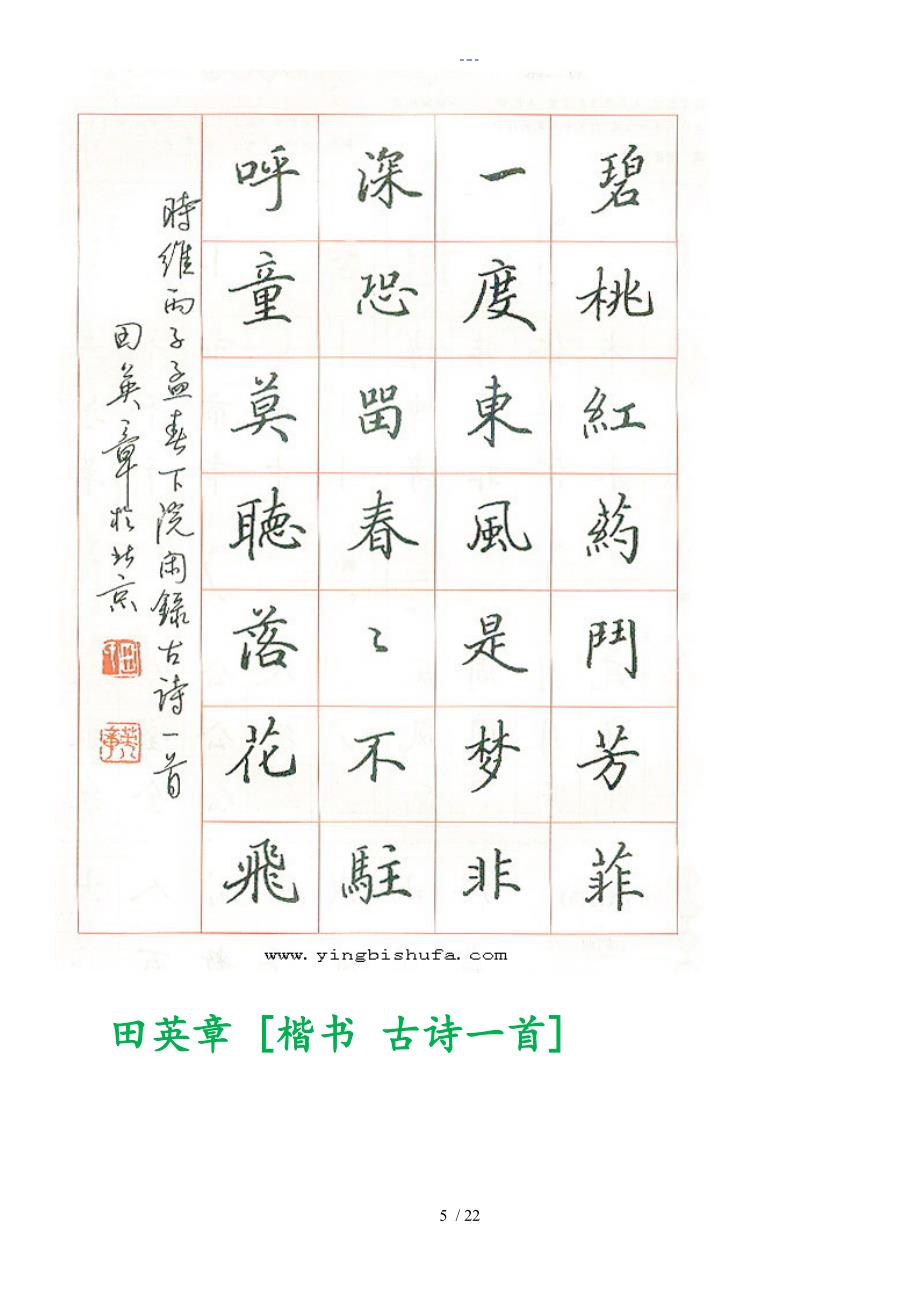 ---
碧桃紅葯鬥芳菲
一度東風是梦非
深恐畱春〻不駐
呼童莫聽落花飛
時維丙子孟春下院閑錄古诗一首
田英章於北京
田
英章
www.yingbishufa.com
田英章 [楷书 古诗一首]
5 / 22